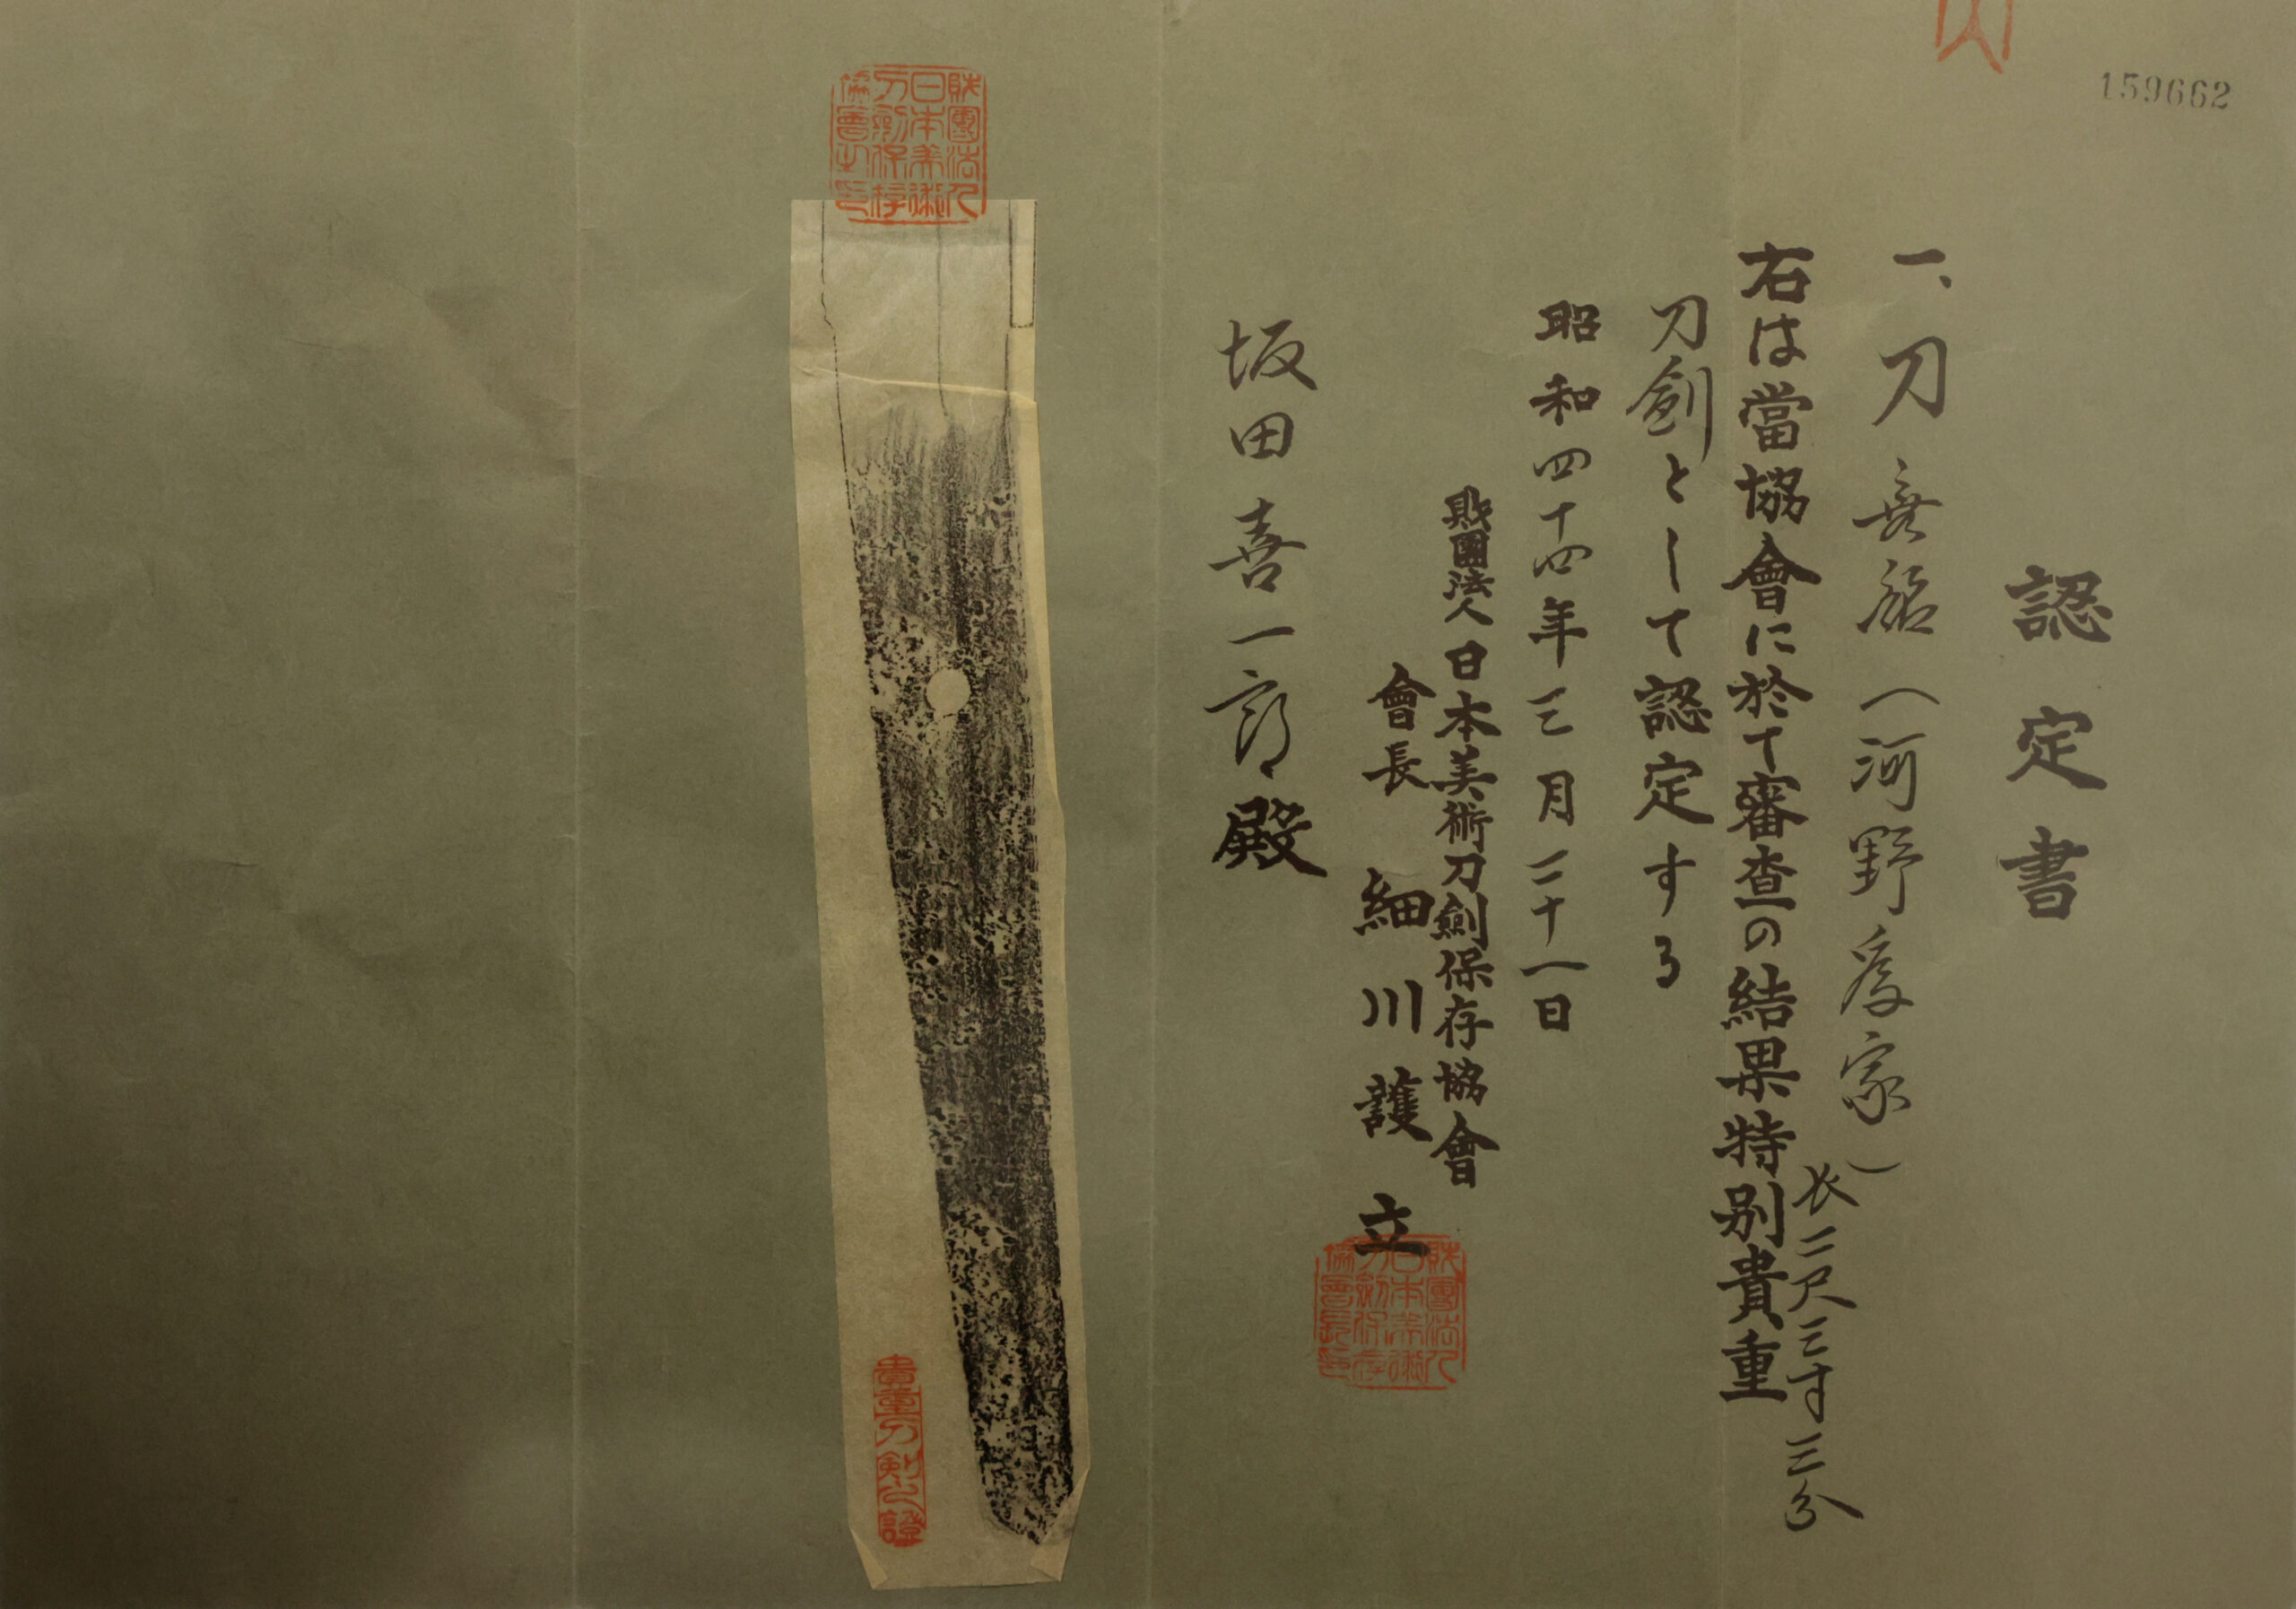 159662
認定書
一、刀 無銘(河野為家)
長二尺三寸三分
右は當協會に於て審査の結果特別貴重
刀劍として認定する
昭和四十四年三月二十一日
財團法人日本美術刀劍保存協會
會長 細川護立
財團法人
日本美術
刀劍保存
協會長印
坂田喜一郎殿
財團法人
日本美術
刀劍保存
協會之印
貴重刀剣之證